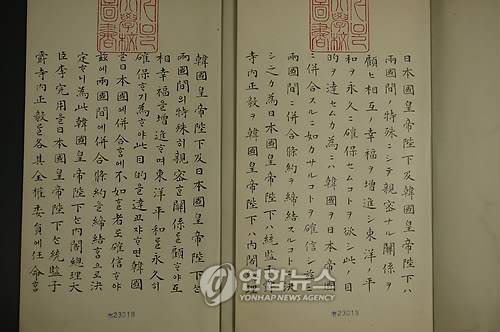 日本國皇帝陛下及韓國皇帝陛下ハ
兩國間ノ特殊ニシテ親密ナル關係ヲ
顧ヒ相互ノ幸福ヲ增進シ東洋ノ平
和ヲ永久ニ確保セムコトヲ欲シ此ノ目
的ヲ達セムカ爲ニハ韓國ヲ日本帝國
ニ併合スルニ如カサルコトヲ確信シ茲ニ
兩國間ニ併合條約ヲ締結スルコトニ決
シ之カ爲日本國皇帝陛下ハ統監子爵
寺內正毅ヲ韓國皇帝陛下ハ內閣總
23018
韓國皇帝陛下及日本國皇帝陛下는
兩國間의特殊히親密ᄒᆞᆫ關係를顧ᄒᆞ야互
相幸福을增進ᄒᆞ며東洋平和를永久히
確保ᄒᆞ기爲ᄒᆞ야此目的을達코자ᄒᆞ면韓國
을日本國에併合ᄒᆞᆷ에不如ᄒᆞᆫ者로確信ᄒᆞ야
玆에兩國間에併合條約을締結ᄒᆞᆷ으로決
定ᄒᆞ니爲此韓國皇帝陛下는內閣總理大
臣李完用을日本國皇帝陛下는統監子
爵寺內正毅를各其全權委員에任命ᄒᆞᆷ
23019
연합뉴스
YONHAP NEWS AGENCY